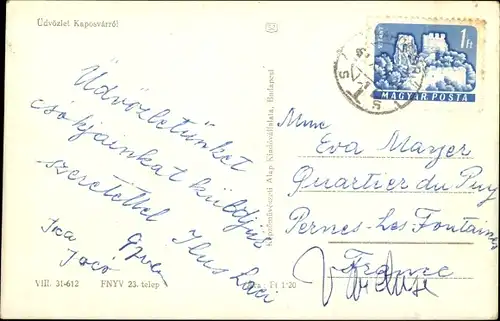 Üdvözlet Kaposvárról
Üdvözletünket
csókjainkat küldjük
szeretettel Ilus Laci
Ica
Jocó
VIII. 31-612 FNYV 23. telep
Ára: Ft 1·20
Képzőművészeti Alap Kiadóvállalata, Budapest
1 Ft
MAGYAR POSTA
Mme
Eva Mayer
Quartier du Puy
Pernes-Les Fontaines
Vaucluse
France